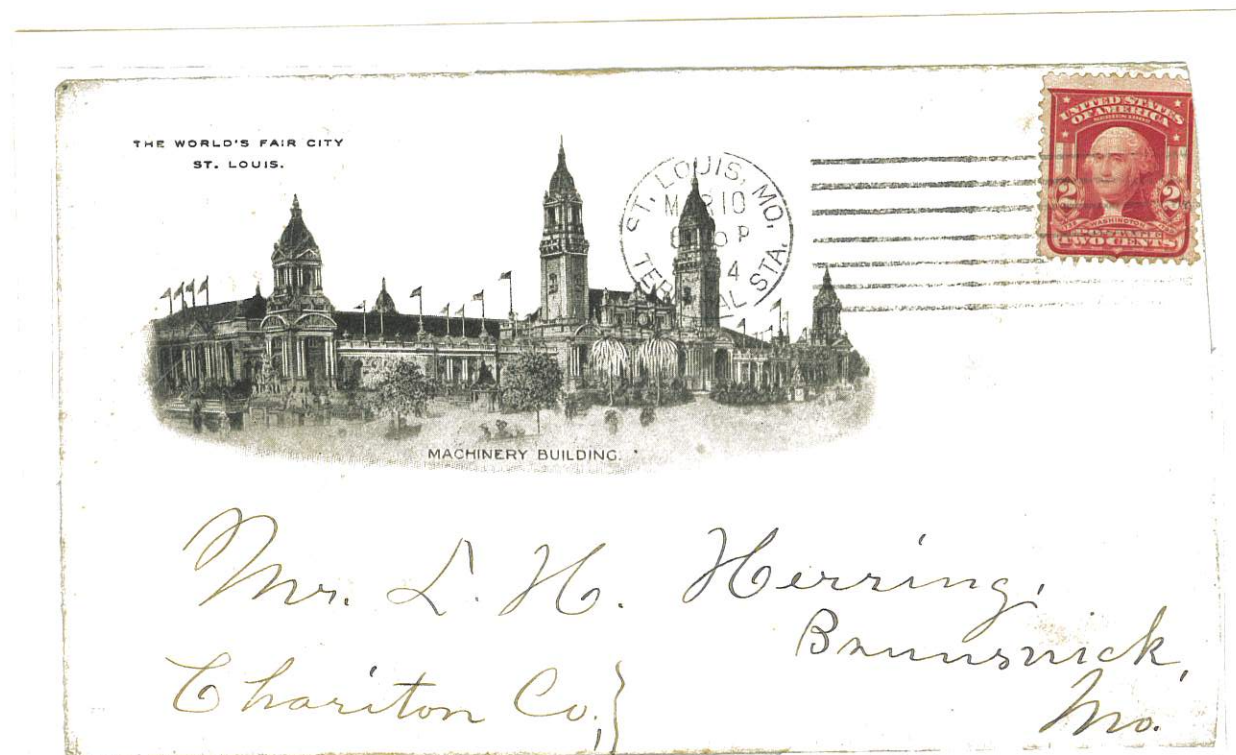 THE WORLD'S FAIR CITY
ST. LOUIS.
ST. LOUIS, MO.
MAR 10
P
4
TERMINAL STA.
UNITED STATES
OF AMERICA
SERIES 1902
2 2
WASHINGTON
POSTAGE
TWO CENTS
MACHINERY BUILDING.
Mr. L. H. Herring,
Brunswick,
Chariton Co., Mo.